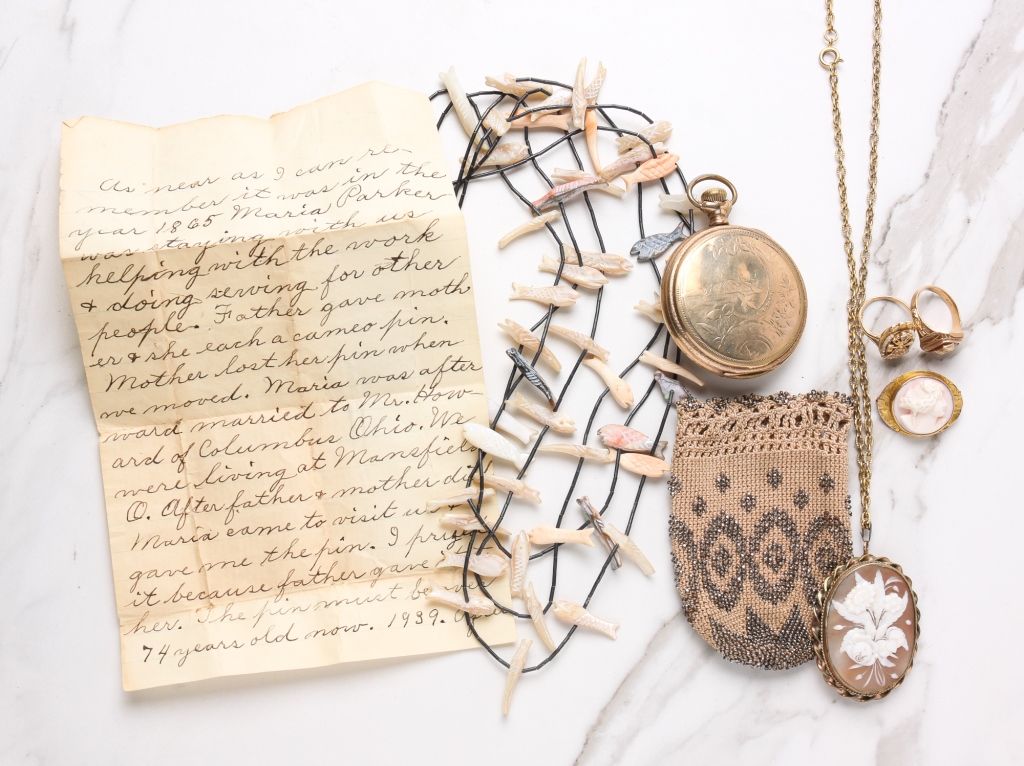 As near as I can re-
member it was in the
year 1865 Maria Parker
was staying with us
helping with the work
& doing serving for other
people. Father gave moth
er & she each a cameo pin.
Mother lost her pin when
we moved. Maria was after
ward married to Mr. How-
ard of Columbus Ohio. We
were living at Mansfield
O. After father & mother di
Maria came to visit us &
gave me the pin. I prize
it because father gave i
her. The pin must be
74 years old now. 1939.